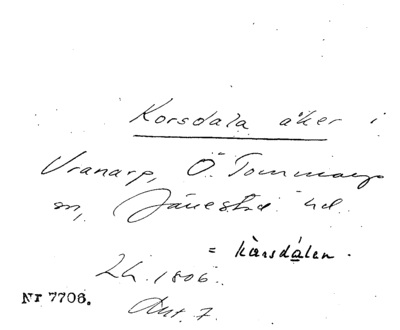 Korsdala åker i
Vranarp, Ö. Tommarps
sn, Järrestad hd.
= kårsdalen.
Lh. 1806.
Akt. 7.
Nr 7706.